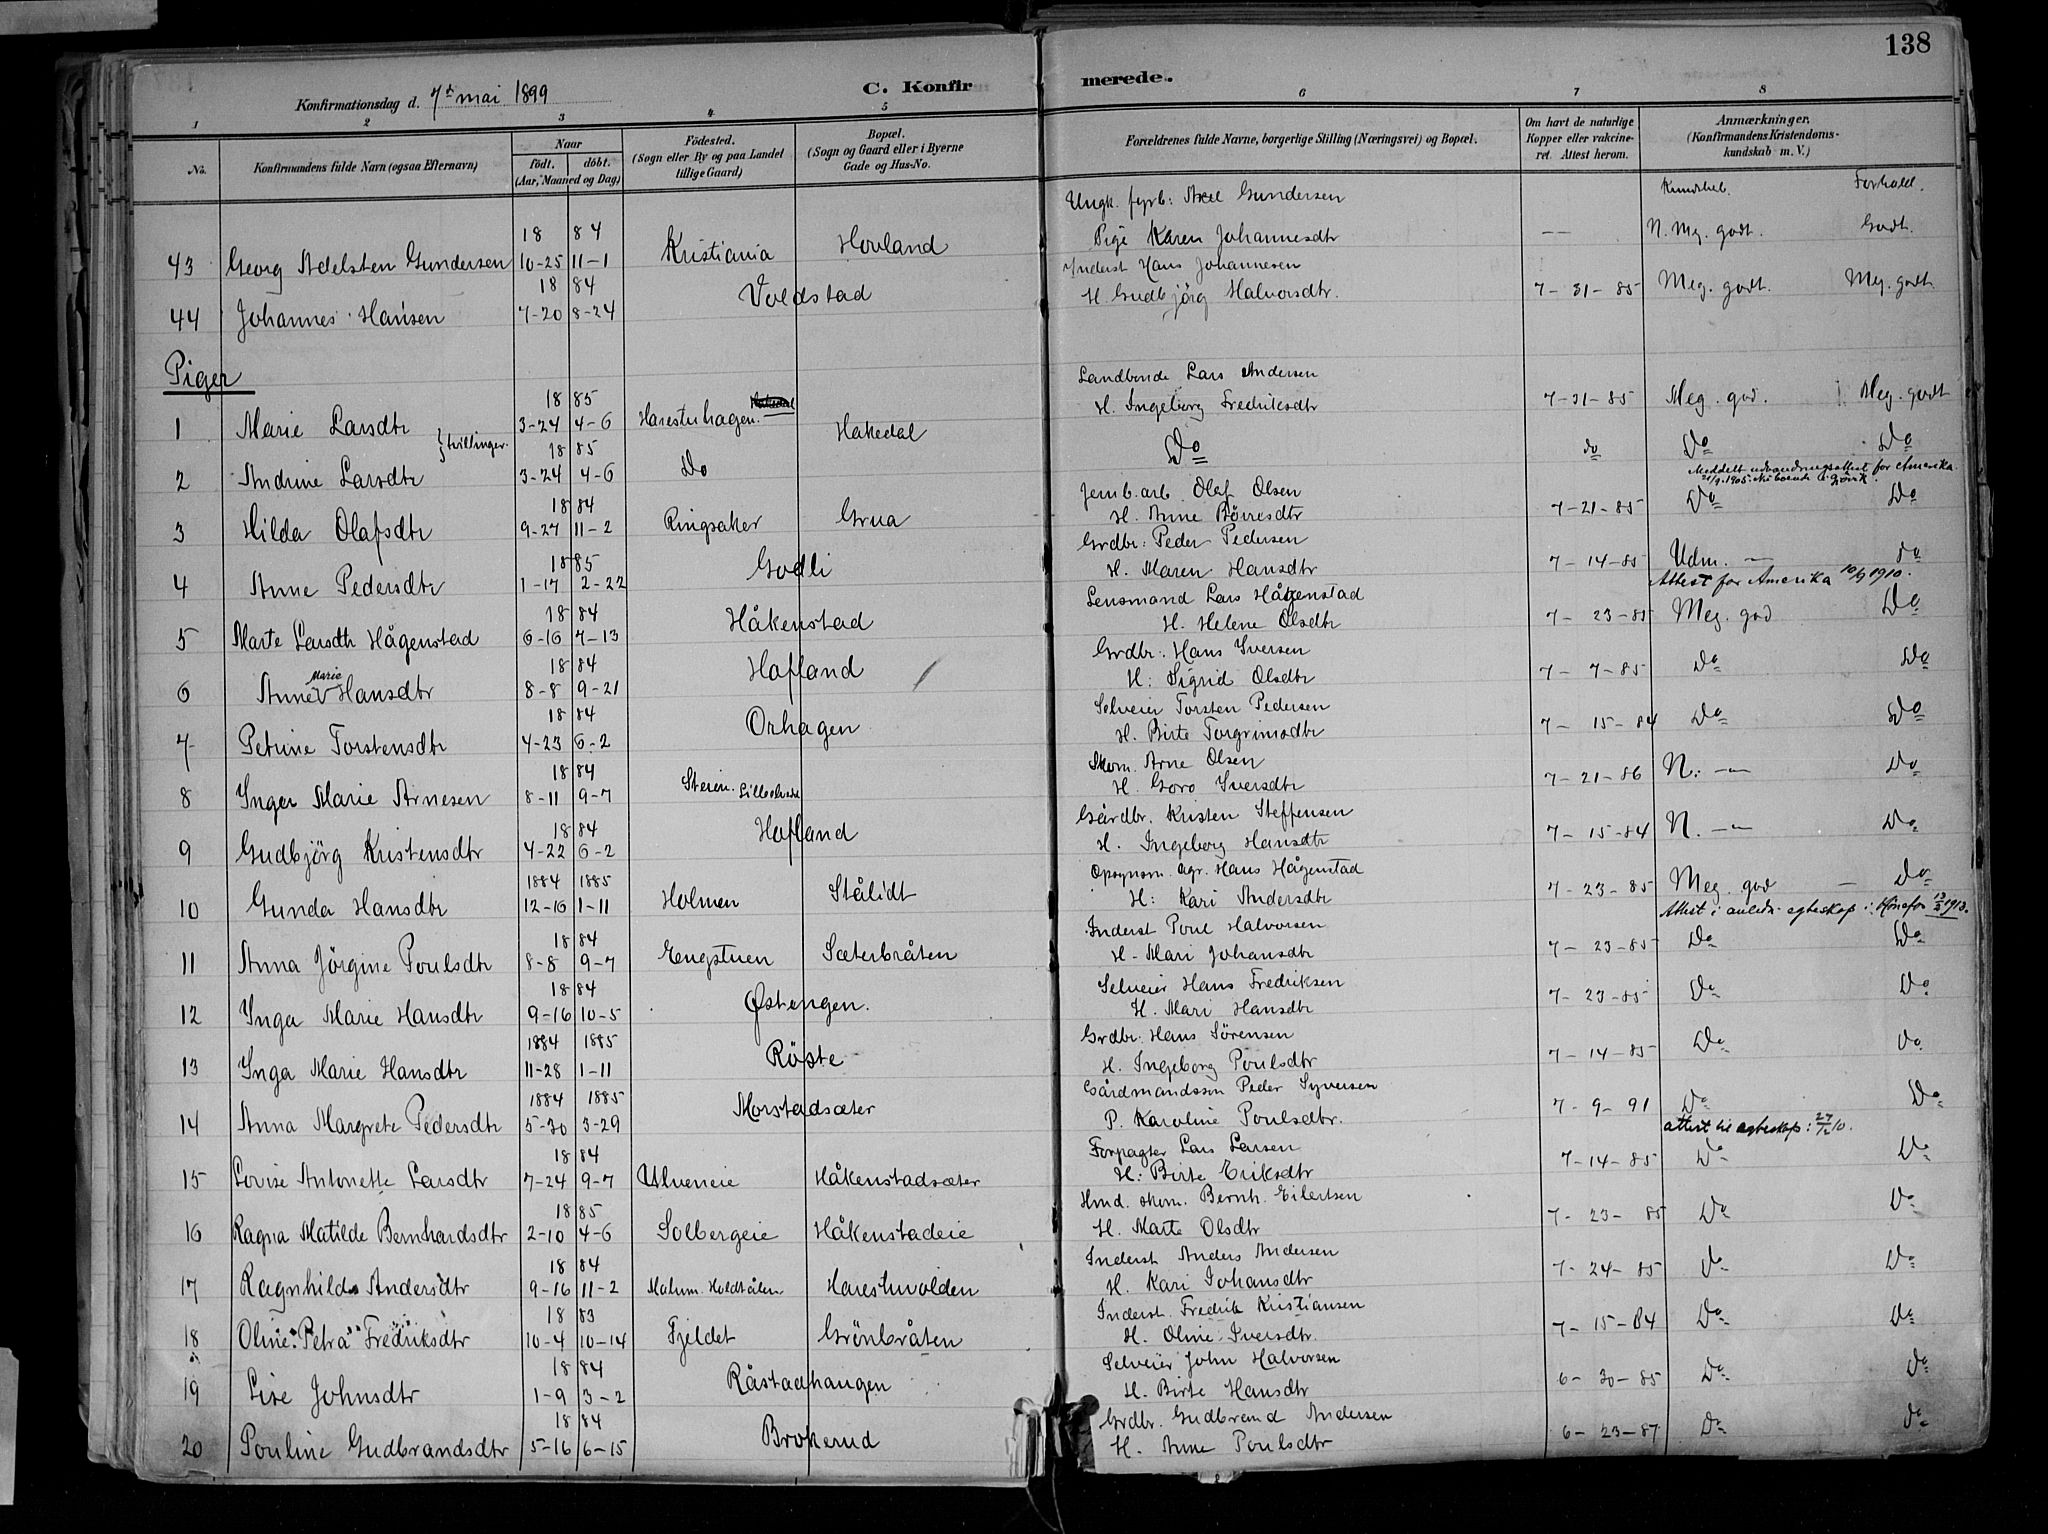 138
Konfirmationsdag d. 7de mai 1899 C. Konfirmerede.
1 2 3 4 5 6 7 8
No. Konfirmandens fulde Navn (ogsaa Efternavn) Naar født. døbt. (Aar, Maaned og Dag) Födested. (Sogn eller By og paa Landet tillige Gaard) Bopæl. (Sogn og Gaard eller i Byerne Gade og Hus-No. Forældrenes fulde Navne, borgerlige Stilling (Næringsvei) og Bopæl. Om havt de naturlige Kopper eller vakcineret. Attest herom. Anmærkninger. (Konfirmandens Kristendomskundskab m. V.)
Kundskab. Forhold.
Ungk. fyrb: Axel Gundersen
43 Georg Adelsten Gundersen 1884 10-25 11-1 Kristiania Hovland Pige Karen Johannesdtr — N. Meg. godt. Godt.
Inderst Hans Johannesen
44 Johannes Hansen 1884 7-20 8-24 Voldstad H. Gudbjörg Halvorsdtr. 7-31-85 Meg. godt. Meg. godt
Piger
Landbonde Lars Andersen
1 Marie Larsdtr 1885 3-24 4-6 Harestuhagen. Hakedal H. Ingeborg Fredriksdtr 7-31-85 Meg. god. Meg. godt
tvillinger.
2 Andrine Larsdtr 1885 3-24 4-6 Do Do do Do Do
Meddelt udvandringsattest for Amerika 21/9 1905. Nu boende i Gjövik.
Jernb.arb. Olaf Olsen
3 Hilda Olafsdtr 1884 9-27 11-2 Ringsaker Grua H. Anne Börresdtr 7-21-85 Do Do
Grdbr: Peder Pedersen
4 Anne Pedersdtr 1885 1-17 2-22 Godli H. Maren Hansdtr 7-14-85 Udm. — do
Attest for Amerika 10/9 1910.
Lensmand Lars Hågenstad
5 Marte Larsdtr Hågenstad 1884 6-16 7-13 Håkenstad H. Helene Olsdtr 7-23-85 Meg. god Do
Grdbr: Hans Iversen
6 Anne Marie Hansdtr 1884 8-8 9-21 Hafland H: Sigrid Olsdtr 7-7-85 Do Do
Selveier Torsten Pedersen
7 Petrine Torstensdtr 1884 4-23 6-2 Orhagen H. Birte Torgrimsdtr 7-15-84 Do Do
Skom. Arne Olsen
8 Inger Marie Arnesen 1884 8-11 9-7 Steien. H. Goro Iversdtr 7-21-86 N: — Do
Gårdbr. Kristen Steffensen
9 Gudbjörg Kristensdtr 1884 4-22 6-2 Hafland H. Ingeborg Hansdtr 7-15-84 N. — Do
Opsynsm. agr. Hans Hågenstad
10 Gunda Hansdtr 1884 1885 12-16 1-11 Holmen Stålidt H: Kari Andersdtr 7-23-85 Meg. god — Do
Attest i anledn. egteskap i Hönefos 13/2 1913.
Inderst Poul Halvorsen
11 Anna Jörgine Poulsdtr 1884 8-8 9-7 Engstuen Sæterbråten H. Mari Johansdtr 7-23-85 Do Do
Selveier Hans Fredriksen
12 Inga Marie Hansdtr 1884 9-16 10-5 Østengen. H. Mari Hansdtr 7-23-85 Do Do
Grdbr: Hans Sörensen
13 Inga Marie Hansdtr 1884 1885 11-28 1-11 Röste H. Ingeborg Poulsdtr 7-14-85 Do Do
Gårdmandssön Peder Syversen
14 Anna Margrete Pedersdtr 1884 1885 5-30 3-29 Morstadsæter P. Karoline Poulsdtr. 7-9-91 Do Do
attest til egteskap: 27/12 10.
Forpagter Lars Larsen
15 Lovise Antonette Larsdtr 1884 7-24 9-7 Ulveneie Håkenstadsæter H: Birte Eriksdtr 7-14-85 Do Do
Hmd. skom. Bernh. Eilertsen
16 Ragna Matilde Bernhardsdtr 1885 2-10 4-6 Solbergeie Håkenstadeie H. Marte Olsdtr 7-23-85 Do Do
Inderst Anders Andersen
17 Ragnhild Andersdtr 1884 9-16 11-2 Malum. Holdtålen Harestuvolden H. Kari Johansdtr 7-24-85 Do Do
Inderst Fredrik Kristiansen
18 Oline Petra Fredriksdtr 1883 10-4 10-14 Fjeldet Grönbråten H. Oline Iversdtr. 7-15-84 Do Do
Selveier John Halvorsen
19 Lise Johnsdtr 1884 1-9 3-2 Råstadhaugen H. Birte Hansdtr 6-30-85 Do Do
Grdbr. Gudbrand Andersen
20 Pouline Gudbrandsdtr 1884 5-16 6-15 Brokerud H. Anne Poulsdtr 6-23-87 Do Do